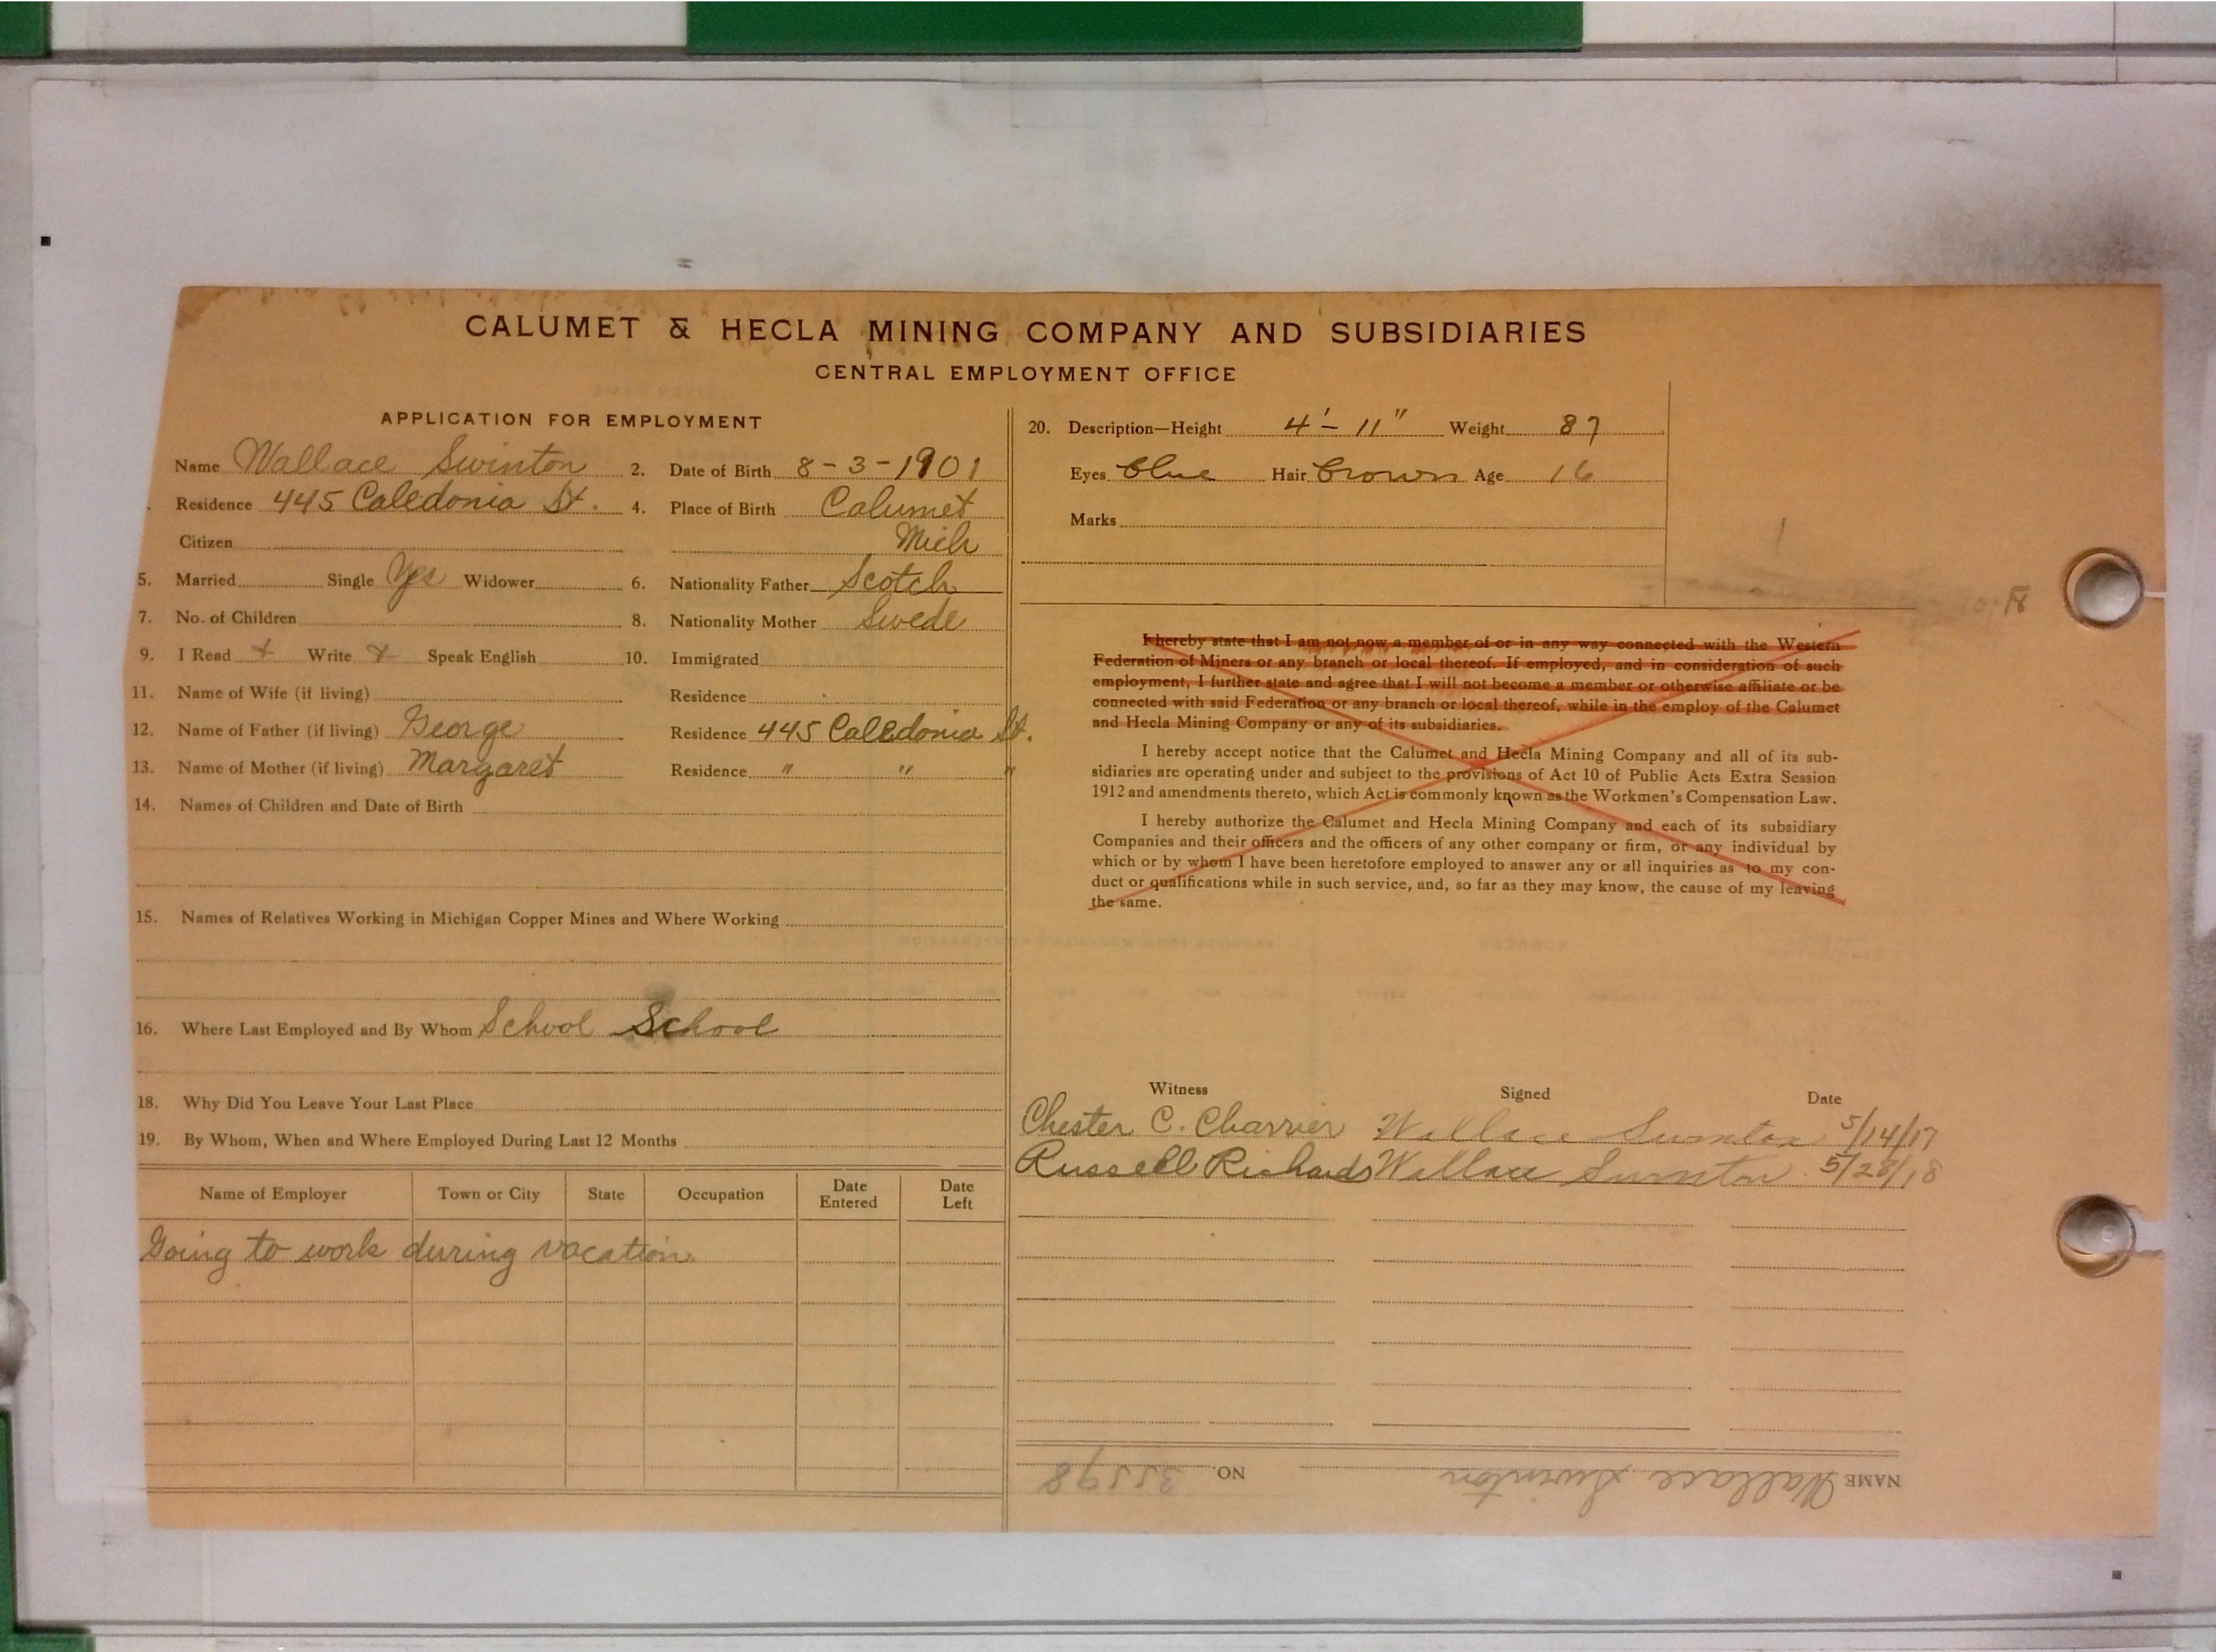 CALUMET & HECLA MINING COMPANY AND SUBSIDIARIES
CENTRAL EMPLOYMENT OFFICE
APPLICATION FOR EMPLOYMENT
Name Wallace Swinton 2. Date of Birth 8-3-1901
Residence 445 Caledonia St. 4. Place of Birth Calumet
Citizen Mich
5. Married Single Yes Widower 6. Nationality Father Scotch
7. No. of Children 8. Nationality Mother Swede
9. I Read x Write x Speak English 10. Immigrated
11. Name of Wife (if living) Residence
12. Name of Father (if living) George Residence 445 Caledonia St.
13. Name of Mother (if living) Margaret Residence " " "
14. Names of Children and Date of Birth
15. Names of Relatives Working in Michigan Copper Mines and Where Working
16. Where Last Employed and By Whom School School
18. Why Did You Leave Your Last Place
19. By Whom, When and Where Employed During Last 12 Months
Name of Employer Town or City State Occupation Date Entered Date Left
Going to work during vacation.
20. Description—Height 4'-11" Weight 87
Eyes blue Hair brown Age 16
Marks
I hereby state that I am not now a member of or in any way connected with the Western
Federation of Miners or any branch or local thereof. If employed, and in consideration of such
employment, I further state and agree that I will not become a member or otherwise affiliate or be
connected with said Federation or any branch or local thereof, while in the employ of the Calumet
and Hecla Mining Company or any of its subsidiaries.
I hereby accept notice that the Calumet and Hecla Mining Company and all of its sub-
sidiaries are operating under and subject to the provisions of Act 10 of Public Acts Extra Session
1912 and amendments thereto, which Act is commonly known as the Workmen's Compensation Law.
I hereby authorize the Calumet and Hecla Mining Company and each of its subsidiary
Companies and their officers and the officers of any other company or firm, or any individual by
which or by whom I have been heretofore employed to answer any or all inquiries as to my con-
duct or qualifications while in such service, and, so far as they may know, the cause of my leaving
the same.
Witness Signed Date
Chester C. Charrier Wallace Swinton 5/14/17
Russell Richards Wallace Swinton 5/28/18
NAME Wallace Swinton NO. 35598